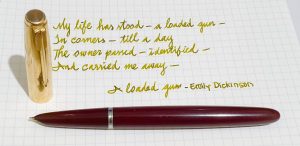 My life has stood – a loaded gun –
In corners – till a day
The owner passed – identified –
And carried me away –
A loaded gun – Emily Dickinson